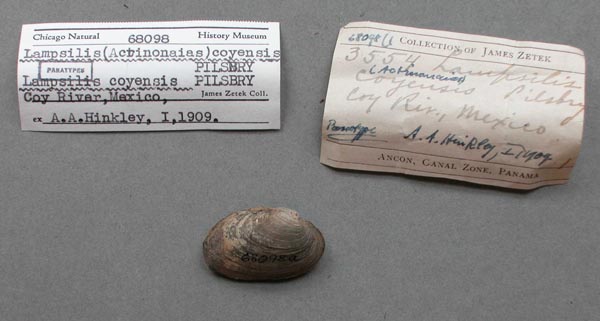 Chicago Natural 68098 History Museum
Lampsilis(Actinonaias)coyensis
PILSBRY
PARATYPES
Lampsilis coyensis PILSBRY
Coy River,Mexico, James Zetek Coll.
ex A.A.Hinkley, I,1909.
68098/1 COLLECTION OF JAMES ZETEK
3554 Lampsilis
(Actinonaias)
coyensis Pilsbry
Coy Riv., Mexico
Paratype A. A. Hinkley, I, 1909
ANCON, CANAL ZONE, PANAMA
68098a